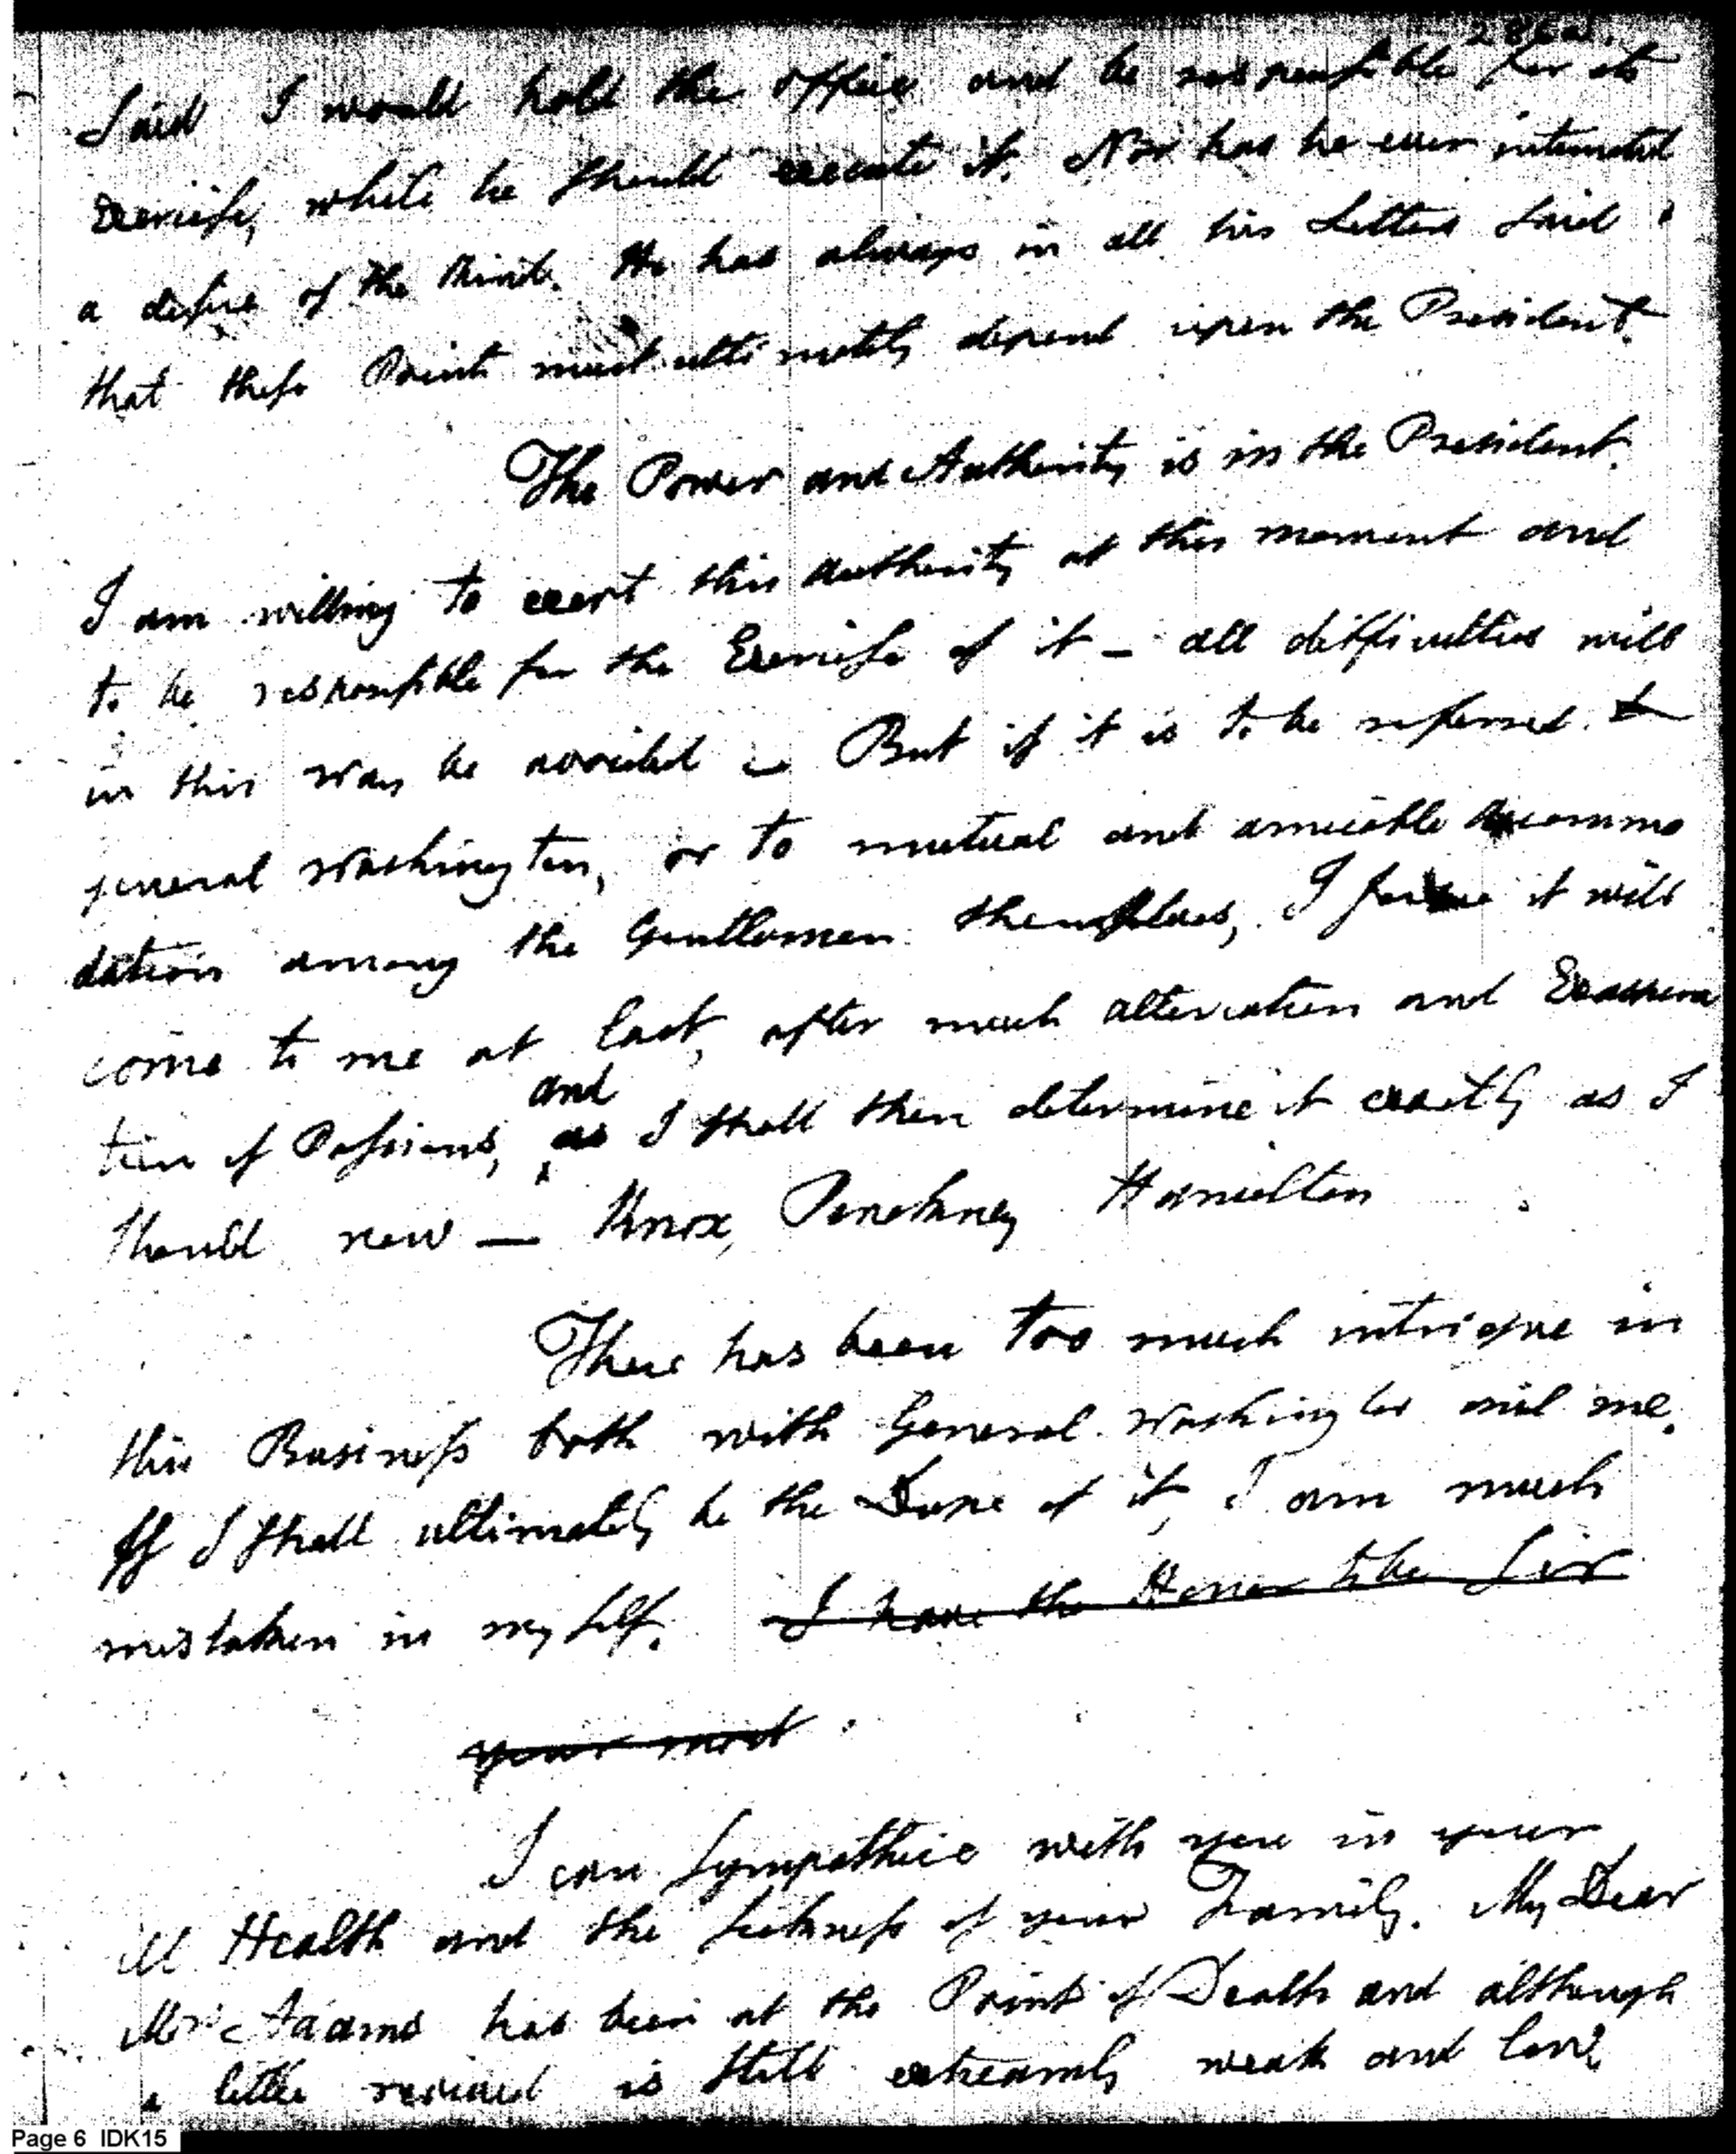 286a.
said I would hold the office and be responsible for its
Exercise, while he should execute it. Nor has he ever intimated
a desire of the kind. He has always in all his Letters said
that these Points must ultimately depend upon the President.
The Power and Authority is in the President.
I am willing to exert this authority at this moment and
to be responsible for the Exercise of it — all difficulties will
in this way be avoided — But if it is to be referred to
general Washington, or to mutual and amicable accommo
dation among the Gentlemen themselves, I it will
come to me at last, after much altercation and Exaspera
tion of Passions, and as I shall then determine it exactly as I
should now — Knox, Pinckney Hamilton
There has been too much intrigue in
this Business both with General Washington and me.
If I shall ultimately be the Dupe of it, I am much
mistaken in myself. I have the Honor to be Sir
your most
I can sympathize with you in your
ill Health and the sickness of your Family. My Dear
Mrs Adams has been at the Point of Death and although
a little revived is still extreamly weak and low,
Page 6 IDK15